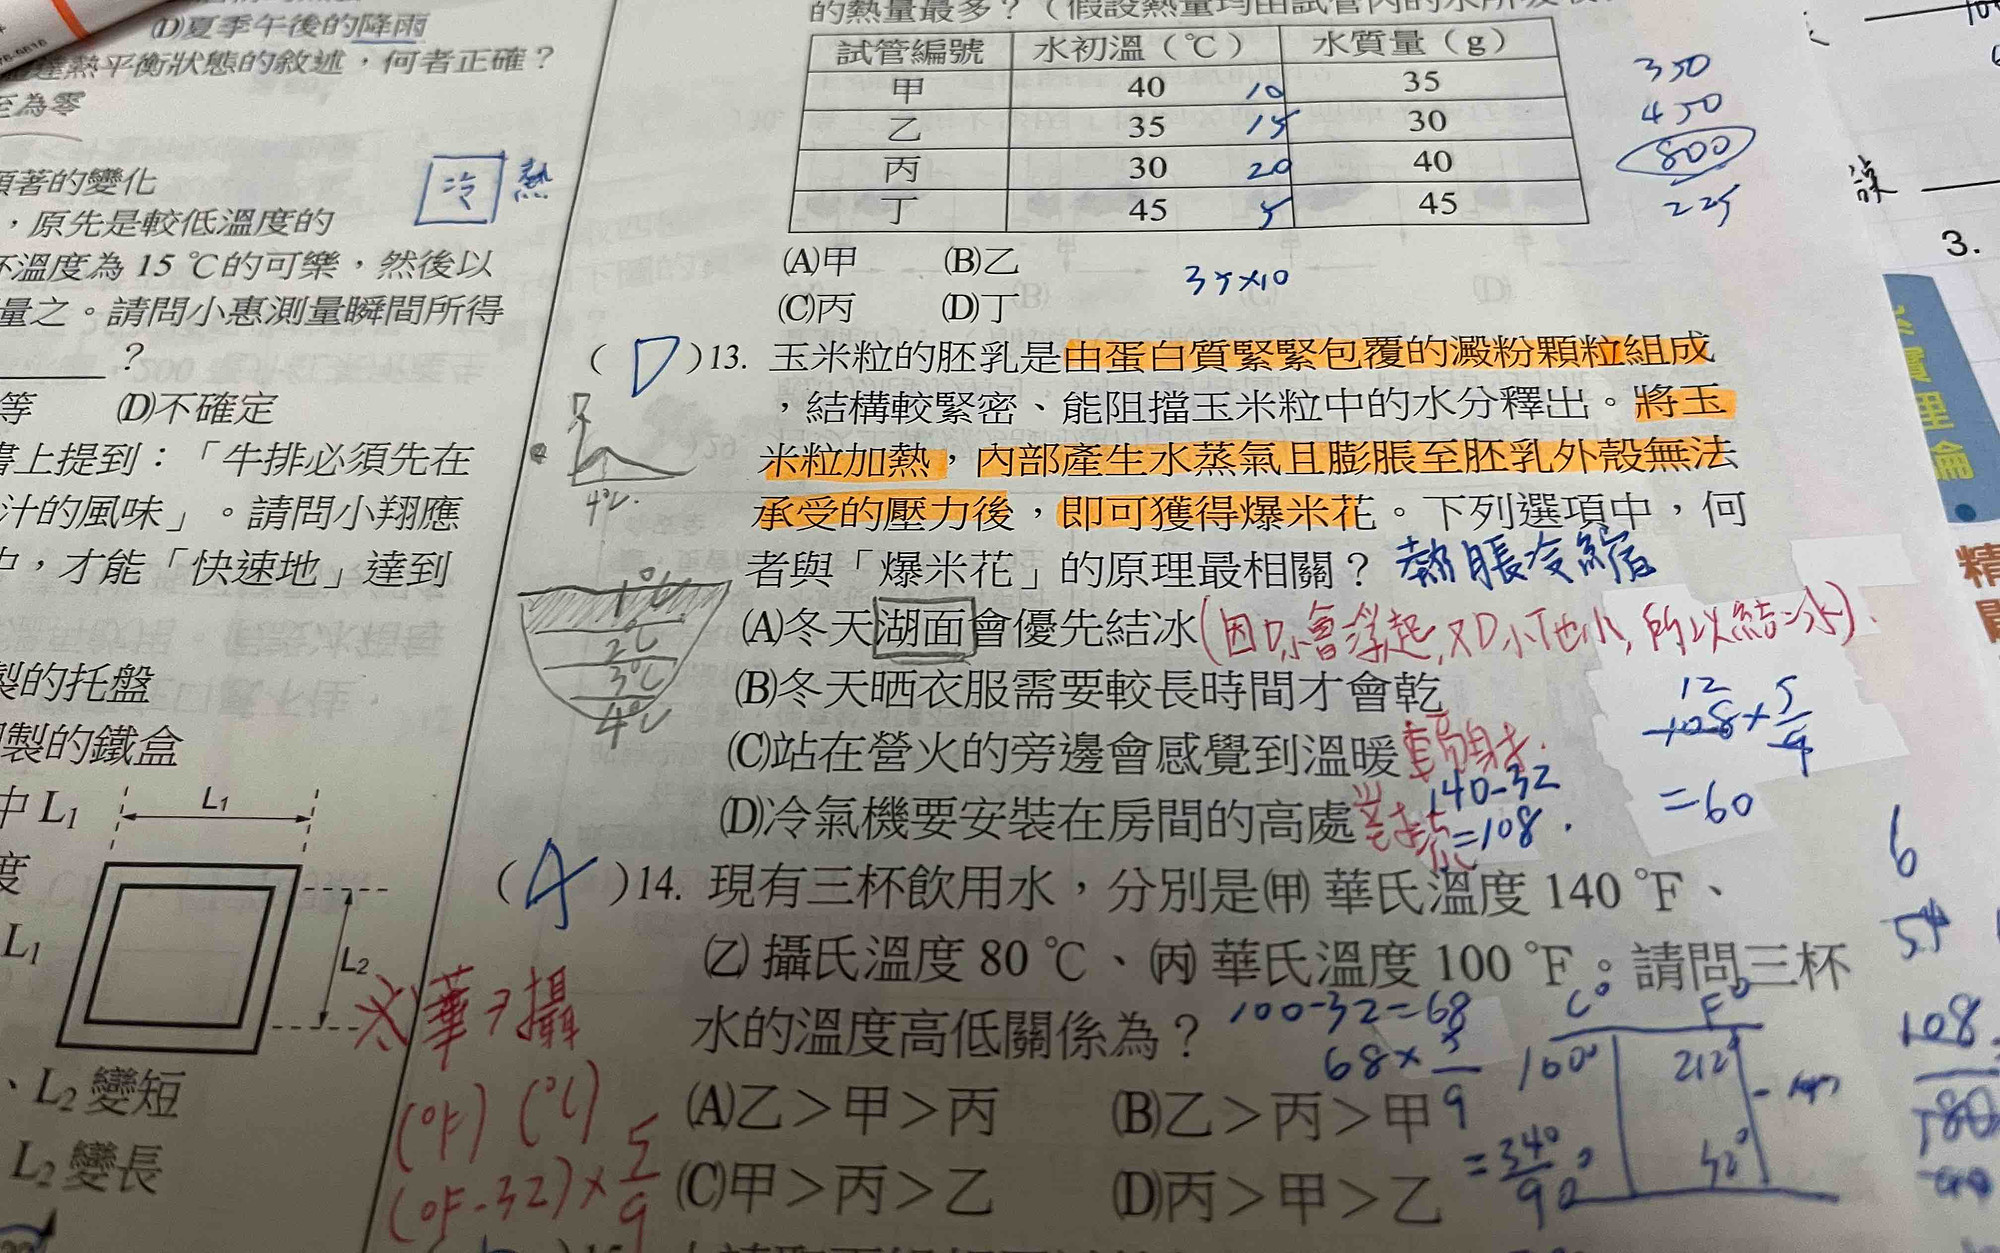 (D)夏季午後的降雨
達熱平衡狀態的敘述，何者正確？
至為零
顯著的變化
，原先是較低溫度的
冷 熱
杯溫度為 15 ℃的可樂，然後以
量之。請問小惠測量瞬間所得
？
等 (D)不確定
書上提到：「牛排必須先在
汁的風味」。請問小翔應
中，才能「快速地」達到
製的托盤
製的鐵盒
中 L1
L1
度
L1
L2
、L2 變短
L2 變長
的熱量最多？（假設熱量均由試管內的水所
試管編號 水初溫（℃） 水質量（g）
甲 40 10 35 350
乙 35 15 30 450
丙 30 20 40 800
丁 45 5 45 225
(A)甲 (B)乙
35×10
(C)丙 (D)丁
( D )13. 玉米粒的胚乳是由蛋白質緊緊包覆的澱粉顆粒組成
，結構較緊密、能阻擋玉米粒中的水分釋出。將玉
米粒加熱，內部產生水蒸氣且膨脹至胚乳外殼無法
承受的壓力後，即可獲得爆米花。下列選項中，何
者與「爆米花」的原理最相關？ 熱脹冷縮
(A)冬天湖面會優先結冰(因D小會浮起,又D小T也小,所以結冰).
(B)冬天晒衣服需要較長時間才會乾
(C)站在營火的旁邊會感覺到溫暖 輻射
(D)冷氣機要安裝在房間的高處 對流
D
4℃
1℃
2℃
3℃
4℃
140-32
=108
12
108×5/9
=60
( A )14. 現有三杯飲用水，分別是(甲) 華氏溫度 140 ℉、
(乙) 攝氏溫度 80 ℃、(丙) 華氏溫度 100 ℉。請問三杯
水的溫度高低關係為？
100-32=68
68×5/9
=340/9
(A)乙＞甲＞丙 (B)乙＞丙＞甲
(C)甲＞丙＞乙 (D)丙＞甲＞乙
C° F°
100° 212°
0° 32°
華→攝
(°F) (℃)
(°F-32)×5/9
3.
實理論
精
6
54
108